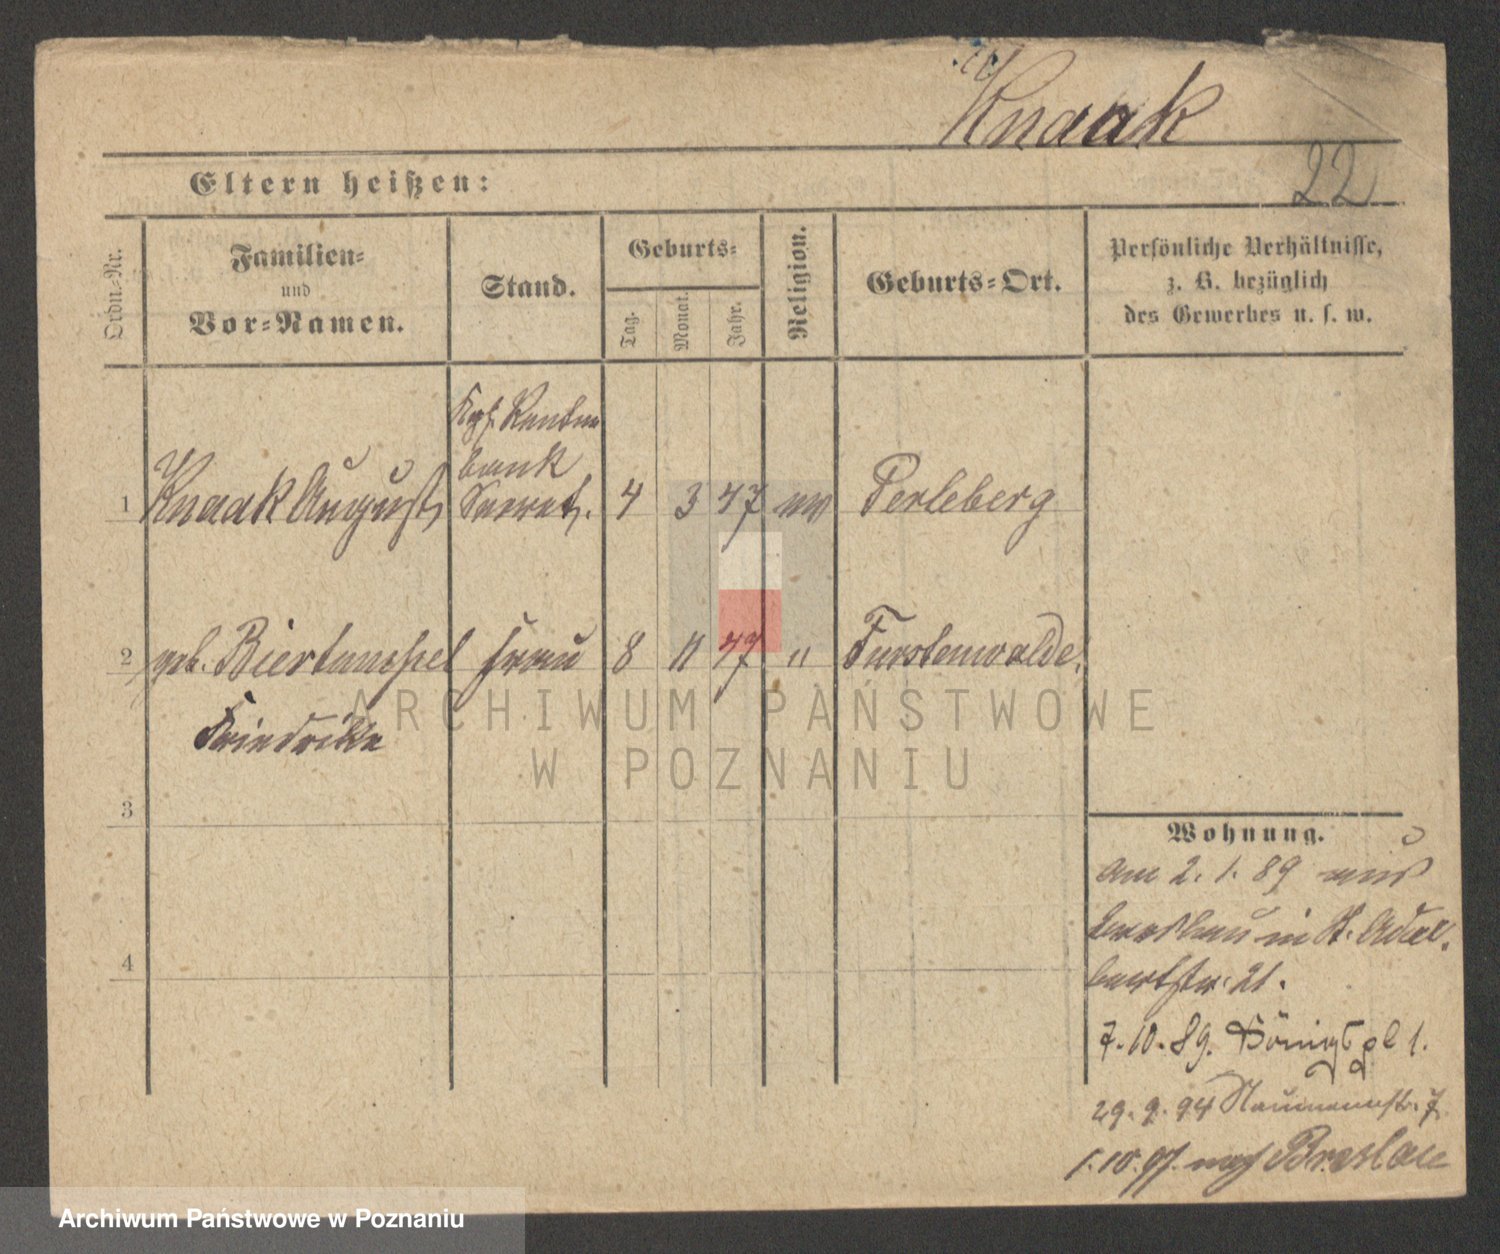 Knaak
22
Eltern heißen:
Ordn.-Nr.
Familien-
und
Vor-Namen.
Stand.
Geburts-
Tag.
Monat.
Jahr.
Religion.
Geburts-Ort.
Persönliche Verhältnisse,
z. B. bezüglich
des Gewerbes u. s. w.
Kgl. Renten
bank
1 Knaak August Secret. 4 3 47 ev Perleberg
2 geb. Biertümpel Frau 8 11 47 " Furstenwalde
Friedrike
3
4
Wohnung.
am 2. 1. 89 aus
Breslau in St. Adal-
bertstr. 21.
7. 10. 89. Königspl 1.
29. 9. 94 Naumannstr. 7
1. 10. 97. nach Breslau
ARCHIWUM PAŃSTWOWE
W POZNANIU
Archiwum Państwowe w Poznaniu